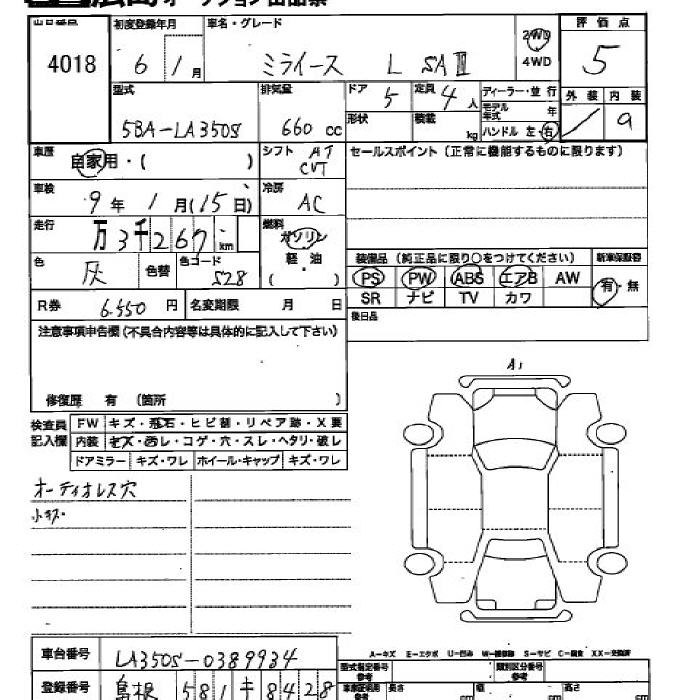 広島 オークション出品票
出品番号 初度登録年月 車名・グレード 2WD 4WD 評価点
4018 6 1月 ミライース L SAⅢ 5
型式 排気量 ドア 定員 ディーラー・並行 外装 内装
5BA-LA350S 660cc 5 4人 モデル年式 年
形状 積載 kg ハンドル 左・右
車歴 自家用・( ) シフト AT CVT セールスポイント(正常に機能するものに限ります)
車検 9年 1月(15日) 冷房 AC
走行 万3千267km 燃料 ガソリン 軽・油 ( ・ )
装備品 (純正品に限り○をつけてください) 新車保証書
色 灰 色替 色コード S28
PS PW ABS エアB AW 有・無
SR ナビ TV カワ
R券 6.550円 名変期限 月 日
後日品
注意事項申告欄(不具合内容等は具体的に記入して下さい)
A1
修復歴 有 (箇所 )
検査員記入欄 FW キズ・飛石・ヒビ割・リペア跡・X要
内装 キズ・汚レ・コゲ・穴・スレ・ヘタリ・破レ
ドアミラー キズ・ワレ ホイール・キャップ キズ・ワレ
オーディオレス穴
小キズ
車台番号 LA350S-0389934
A-キズ E-エクボ U-凹み S-サビ C-腐食 XX-交換済
型式指定番号 参考 類別区分番号 参考
登録番号 島根 581 キ 8428
長さ cm 幅 cm 高さ cm